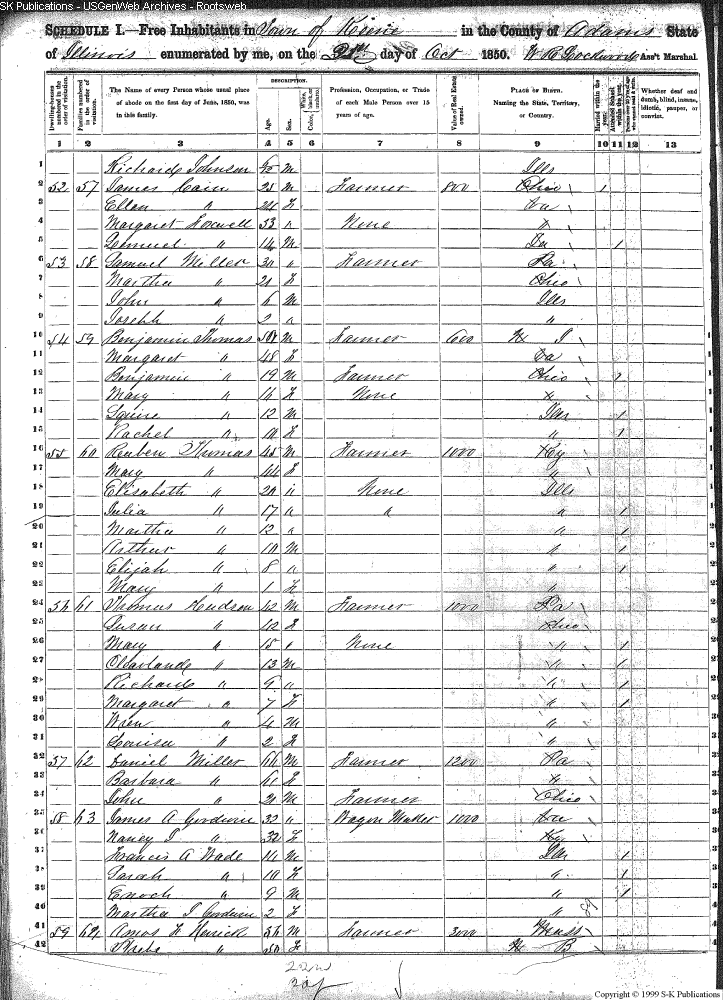 SK Publications - USGenWeb Archives - Rootsweb
SCHEDULE I.—Free Inhabitants in Town of Keene in the County of Adams State
of Illinois enumerated by me, on the 31st day of Oct 1850. Ass't Marshal.
Dwelling-houses numbered in the order of visitation.
Families numbered in the order of visitation.
The Name of every Person whose usual place of abode on the first day of June, 1850, was in this family.
DESCRIPTION.
Age.
Sex.
Color, White, black, or mulatto.
Profession, Occupation, or Trade of each Male Person over 15 years of age.
Value of Real Estate owned.
PLACE OF BIRTH. Naming the State, Territory, or Country.
Married within the year.
Attended School within the year.
Whether deaf and dumb, blind, insane, idiotic, pauper, or convict.
1 2 3 4 5 6 7 8 9 10 11 12 13
1 Richard Johnson M Ills
2 52 57 James Cain M Farmer 800 Ohio 1
3 Ellen " F
4 Margaret 53 " None "
5 Lemuel " 14 M 1
6 53 58 Samuel Miller 30 " Farmer Pa
7 Martha " F Ohio
8 John " 6 M Ills
9 Joseph " 2 " "
10 54 59 Benjamin Thomas M Farmer 600 N J
11 Margaret " 48 F
12 Benjamin " 19 M Farmer Ohio 1
13 Mary " 16 F None "
14 Squire " 12 M Ills 1
15 Rachel " 10 F " 1
16 55 60 Reuben Thomas 45 M Farmer 1000 Ky
17 Mary " 44 F "
18 Elisabeth " 20 " None Ills
19 Julia " 17 " " " 1
20 Martha " 12 " " 1
21 Arthur " 10 M " 1
22 Elijah " 8 " " 1
23 Mary " 1 F "
24 56 61 Thomas Hudson 42 M Farmer 1000 Pa
25 Susan " 42 F Ohio
26 Mary " 15 " None " 1
27 " 13 M " 1
28 Richard " 9 " " 1
29 Margaret " 7 F " 1
30 " 4 M "
31 Louisa " 2 F "
32 57 62 Daniel Miller 66 M Farmer 1200 Pa
33 Barbara " 61 F "
34 John " 21 M Farmer Ohio
35 58 63 James A Goodwin 32 " Wagon Maker 1000
36 Nancy " 32 F Ky
37 Francis A Wade 14 M Ills 1
38 Sarah " 10 F " 1
39 Enoch " 9 M " 1
40 Martha Goodwin 2 F "
41 59 64 Amos 56 M Farmer 3000 Mass
42 Phebe " 50 F N B
Copyright © 1999 S-K Publications